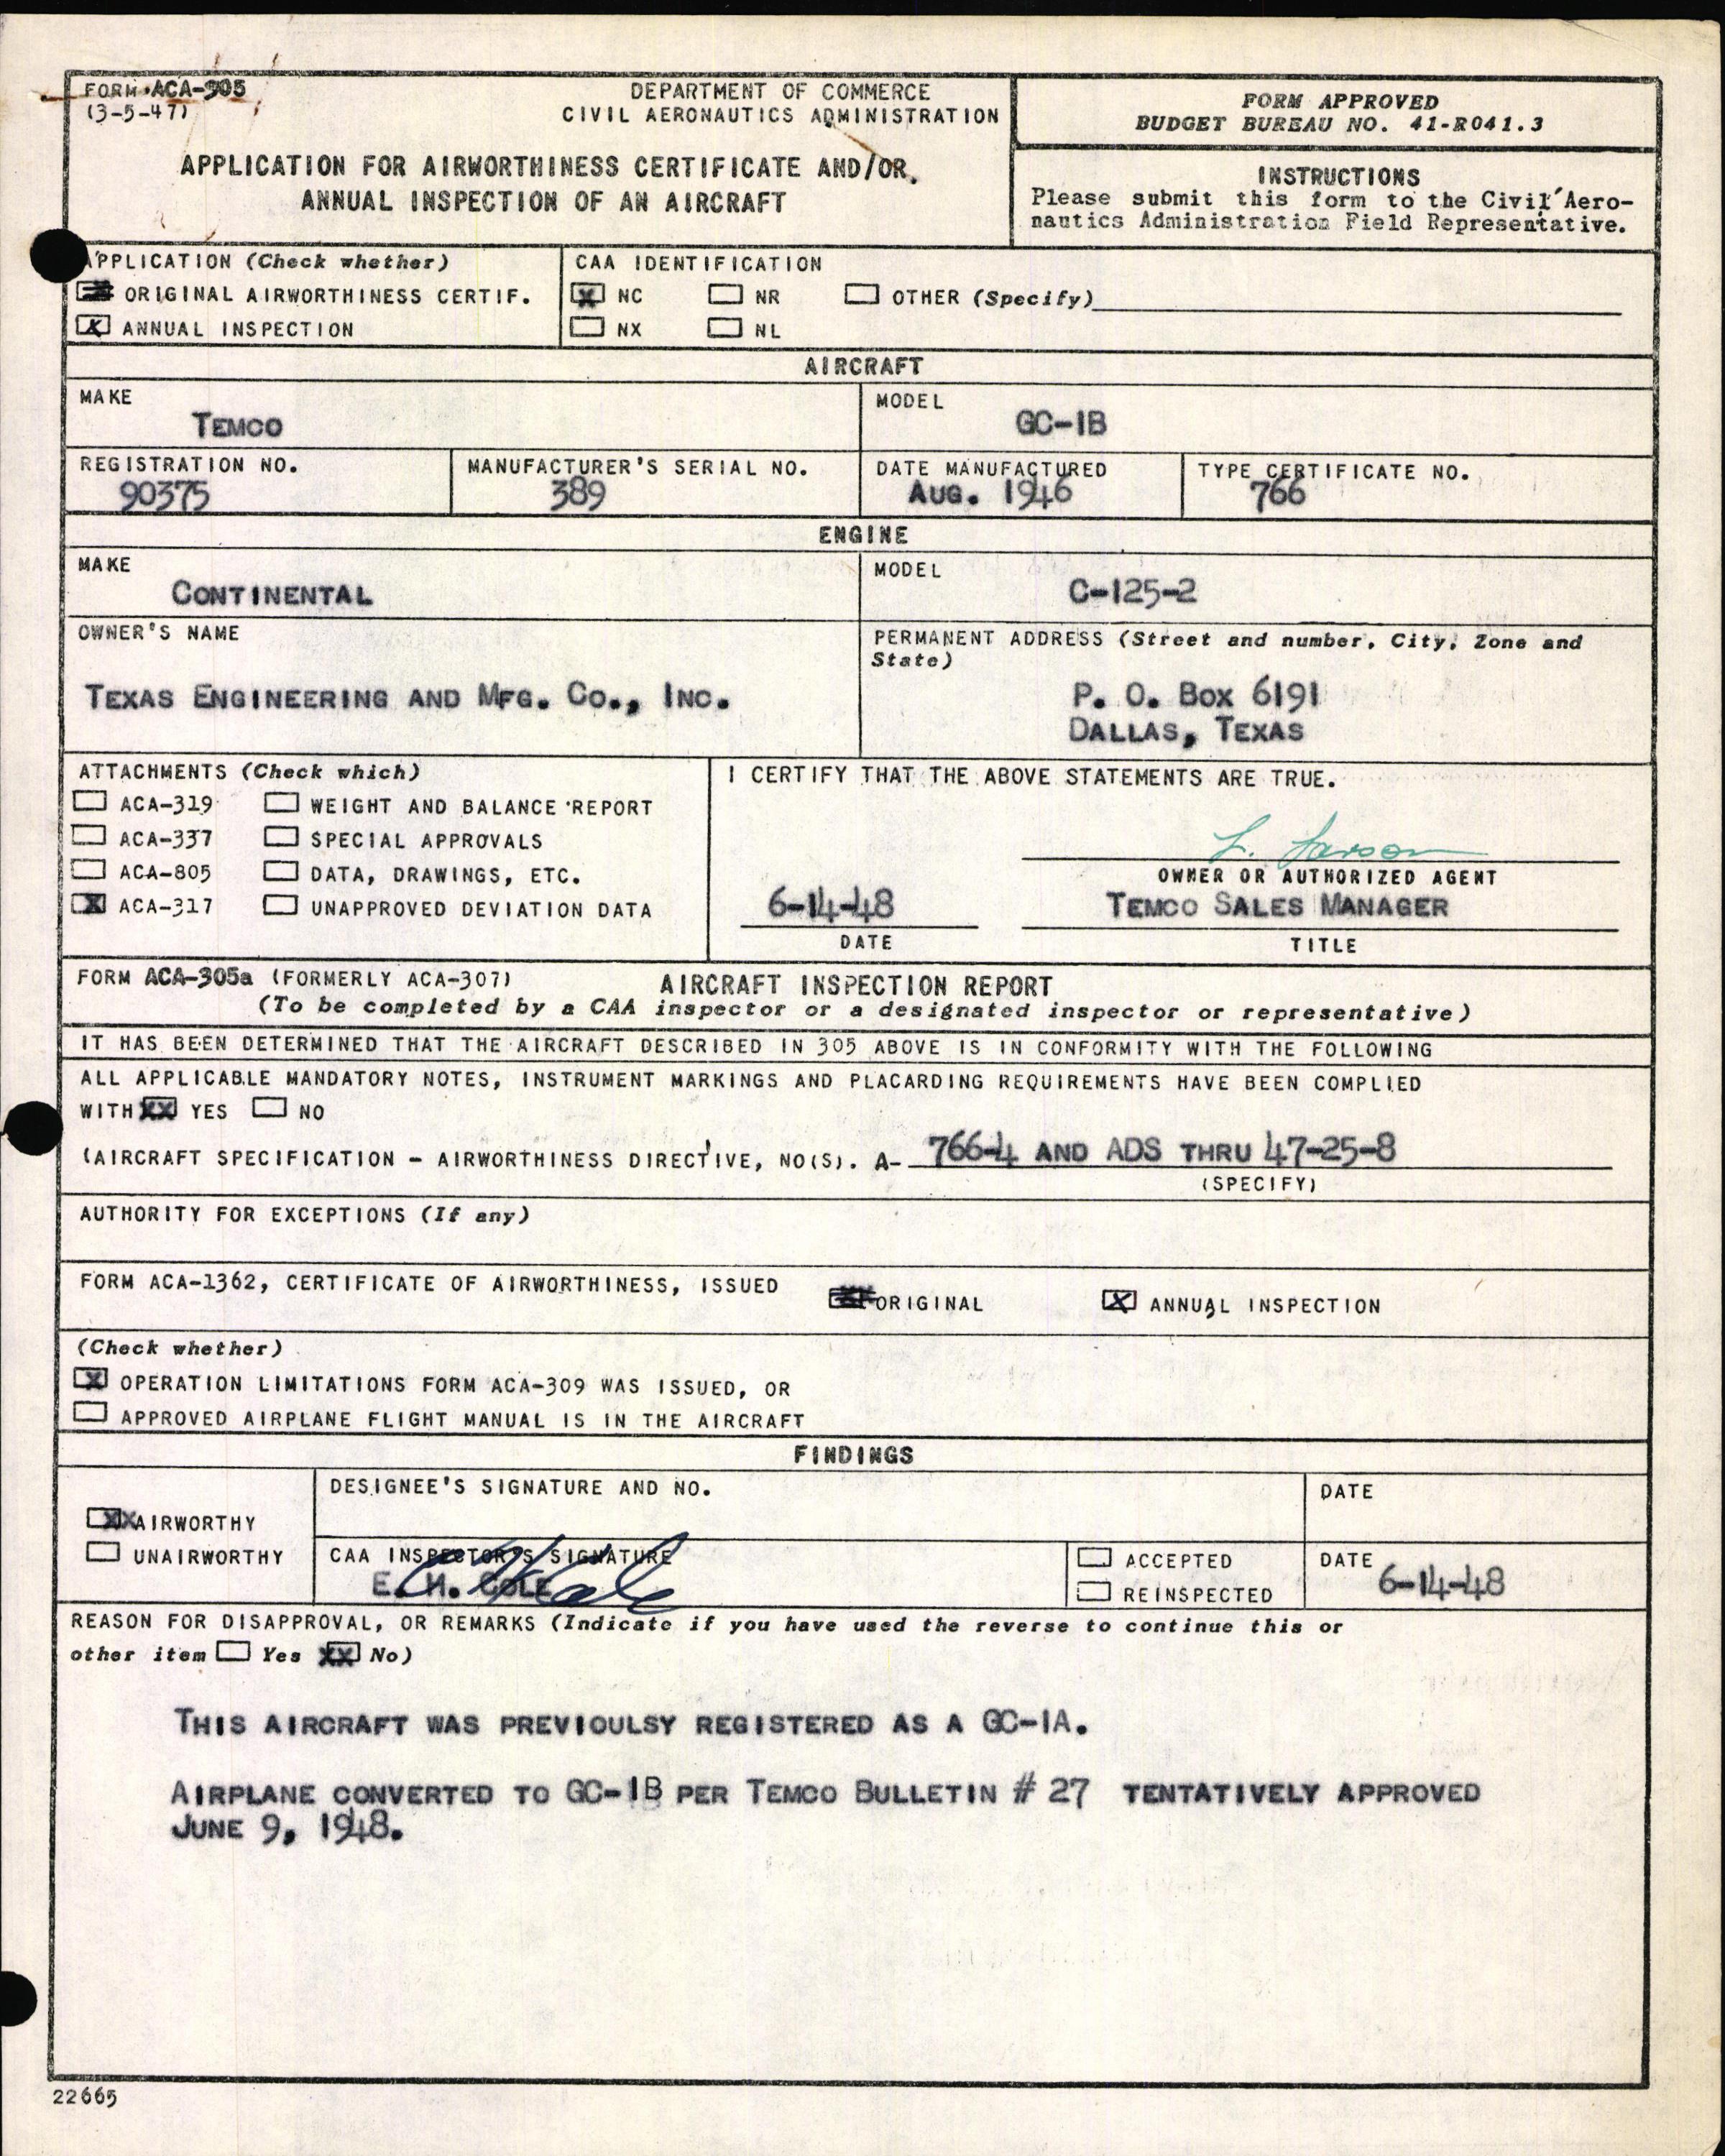 FORM ACA-305
(3-5-47)
DEPARTMENT OF COMMERCE
CIVIL AERONAUTICS ADMINISTRATION
APPLICATION FOR AIRWORTHINESS CERTIFICATE AND/OR
ANNUAL INSPECTION OF AN AIRCRAFT
FORM APPROVED
BUDGET BUREAU NO. 41-R041.3
INSTRUCTIONS
Please submit this form to the Civil Aero-
nautics Administration Field Representative.
APPLICATION (Check whether)
ORIGINAL AIRWORTHINESS CERTIF.
X ANNUAL INSPECTION
CAA IDENTIFICATION
X NC NR OTHER (Specify)
NX NL
AIRCRAFT
MAKE
TEMCO
MODEL
GC-1B
REGISTRATION NO.
90375
MANUFACTURER'S SERIAL NO.
389
DATE MANUFACTURED
AUG. 1946
TYPE CERTIFICATE NO.
766
ENGINE
MAKE
CONTINENTAL
MODEL
C-125-2
OWNER'S NAME
TEXAS ENGINEERING AND MFG. CO., INC.
PERMANENT ADDRESS (Street and number, City, Zone and
State)
P. O. BOX 6191
DALLAS, TEXAS
ATTACHMENTS (Check which)
ACA-319 WEIGHT AND BALANCE REPORT
ACA-337 SPECIAL APPROVALS
ACA-805 DATA, DRAWINGS, ETC.
X ACA-317 UNAPPROVED DEVIATION DATA
I CERTIFY THAT THE ABOVE STATEMENTS ARE TRUE.
L. Larson
OWNER OR AUTHORIZED AGENT
6-14-48 TEMCO SALES MANAGER
DATE TITLE
FORM ACA-305a (FORMERLY ACA-307) AIRCRAFT INSPECTION REPORT
(To be completed by a CAA inspector or a designated inspector or representative)
IT HAS BEEN DETERMINED THAT THE AIRCRAFT DESCRIBED IN 305 ABOVE IS IN CONFORMITY WITH THE FOLLOWING
ALL APPLICABLE MANDATORY NOTES, INSTRUMENT MARKINGS AND PLACARDING REQUIREMENTS HAVE BEEN COMPLIED
WITH XX YES NO
(AIRCRAFT SPECIFICATION - AIRWORTHINESS DIRECTIVE, NO(S). A- 766-4 AND ADS THRU 47-25-8
(SPECIFY)
AUTHORITY FOR EXCEPTIONS (If any)
FORM ACA-1362, CERTIFICATE OF AIRWORTHINESS, ISSUED
ORIGINAL X ANNUAL INSPECTION
(Check whether)
X OPERATION LIMITATIONS FORM ACA-309 WAS ISSUED, OR
APPROVED AIRPLANE FLIGHT MANUAL IS IN THE AIRCRAFT
FINDINGS
XX AIRWORTHY
UNAIRWORTHY
DESIGNEE'S SIGNATURE AND NO.
DATE
CAA INSPECTOR'S SIGNATURE
E. H. COLE
ACCEPTED
REINSPECTED
DATE
6-14-48
REASON FOR DISAPPROVAL, OR REMARKS (Indicate if you have used the reverse to continue this or
other item Yes XX No)
THIS AIRCRAFT WAS PREVIOULSY REGISTERED AS A GC-1A.
AIRPLANE CONVERTED TO GC-1B PER TEMCO BULLETIN # 27 TENTATIVELY APPROVED
JUNE 9, 1948.
22665